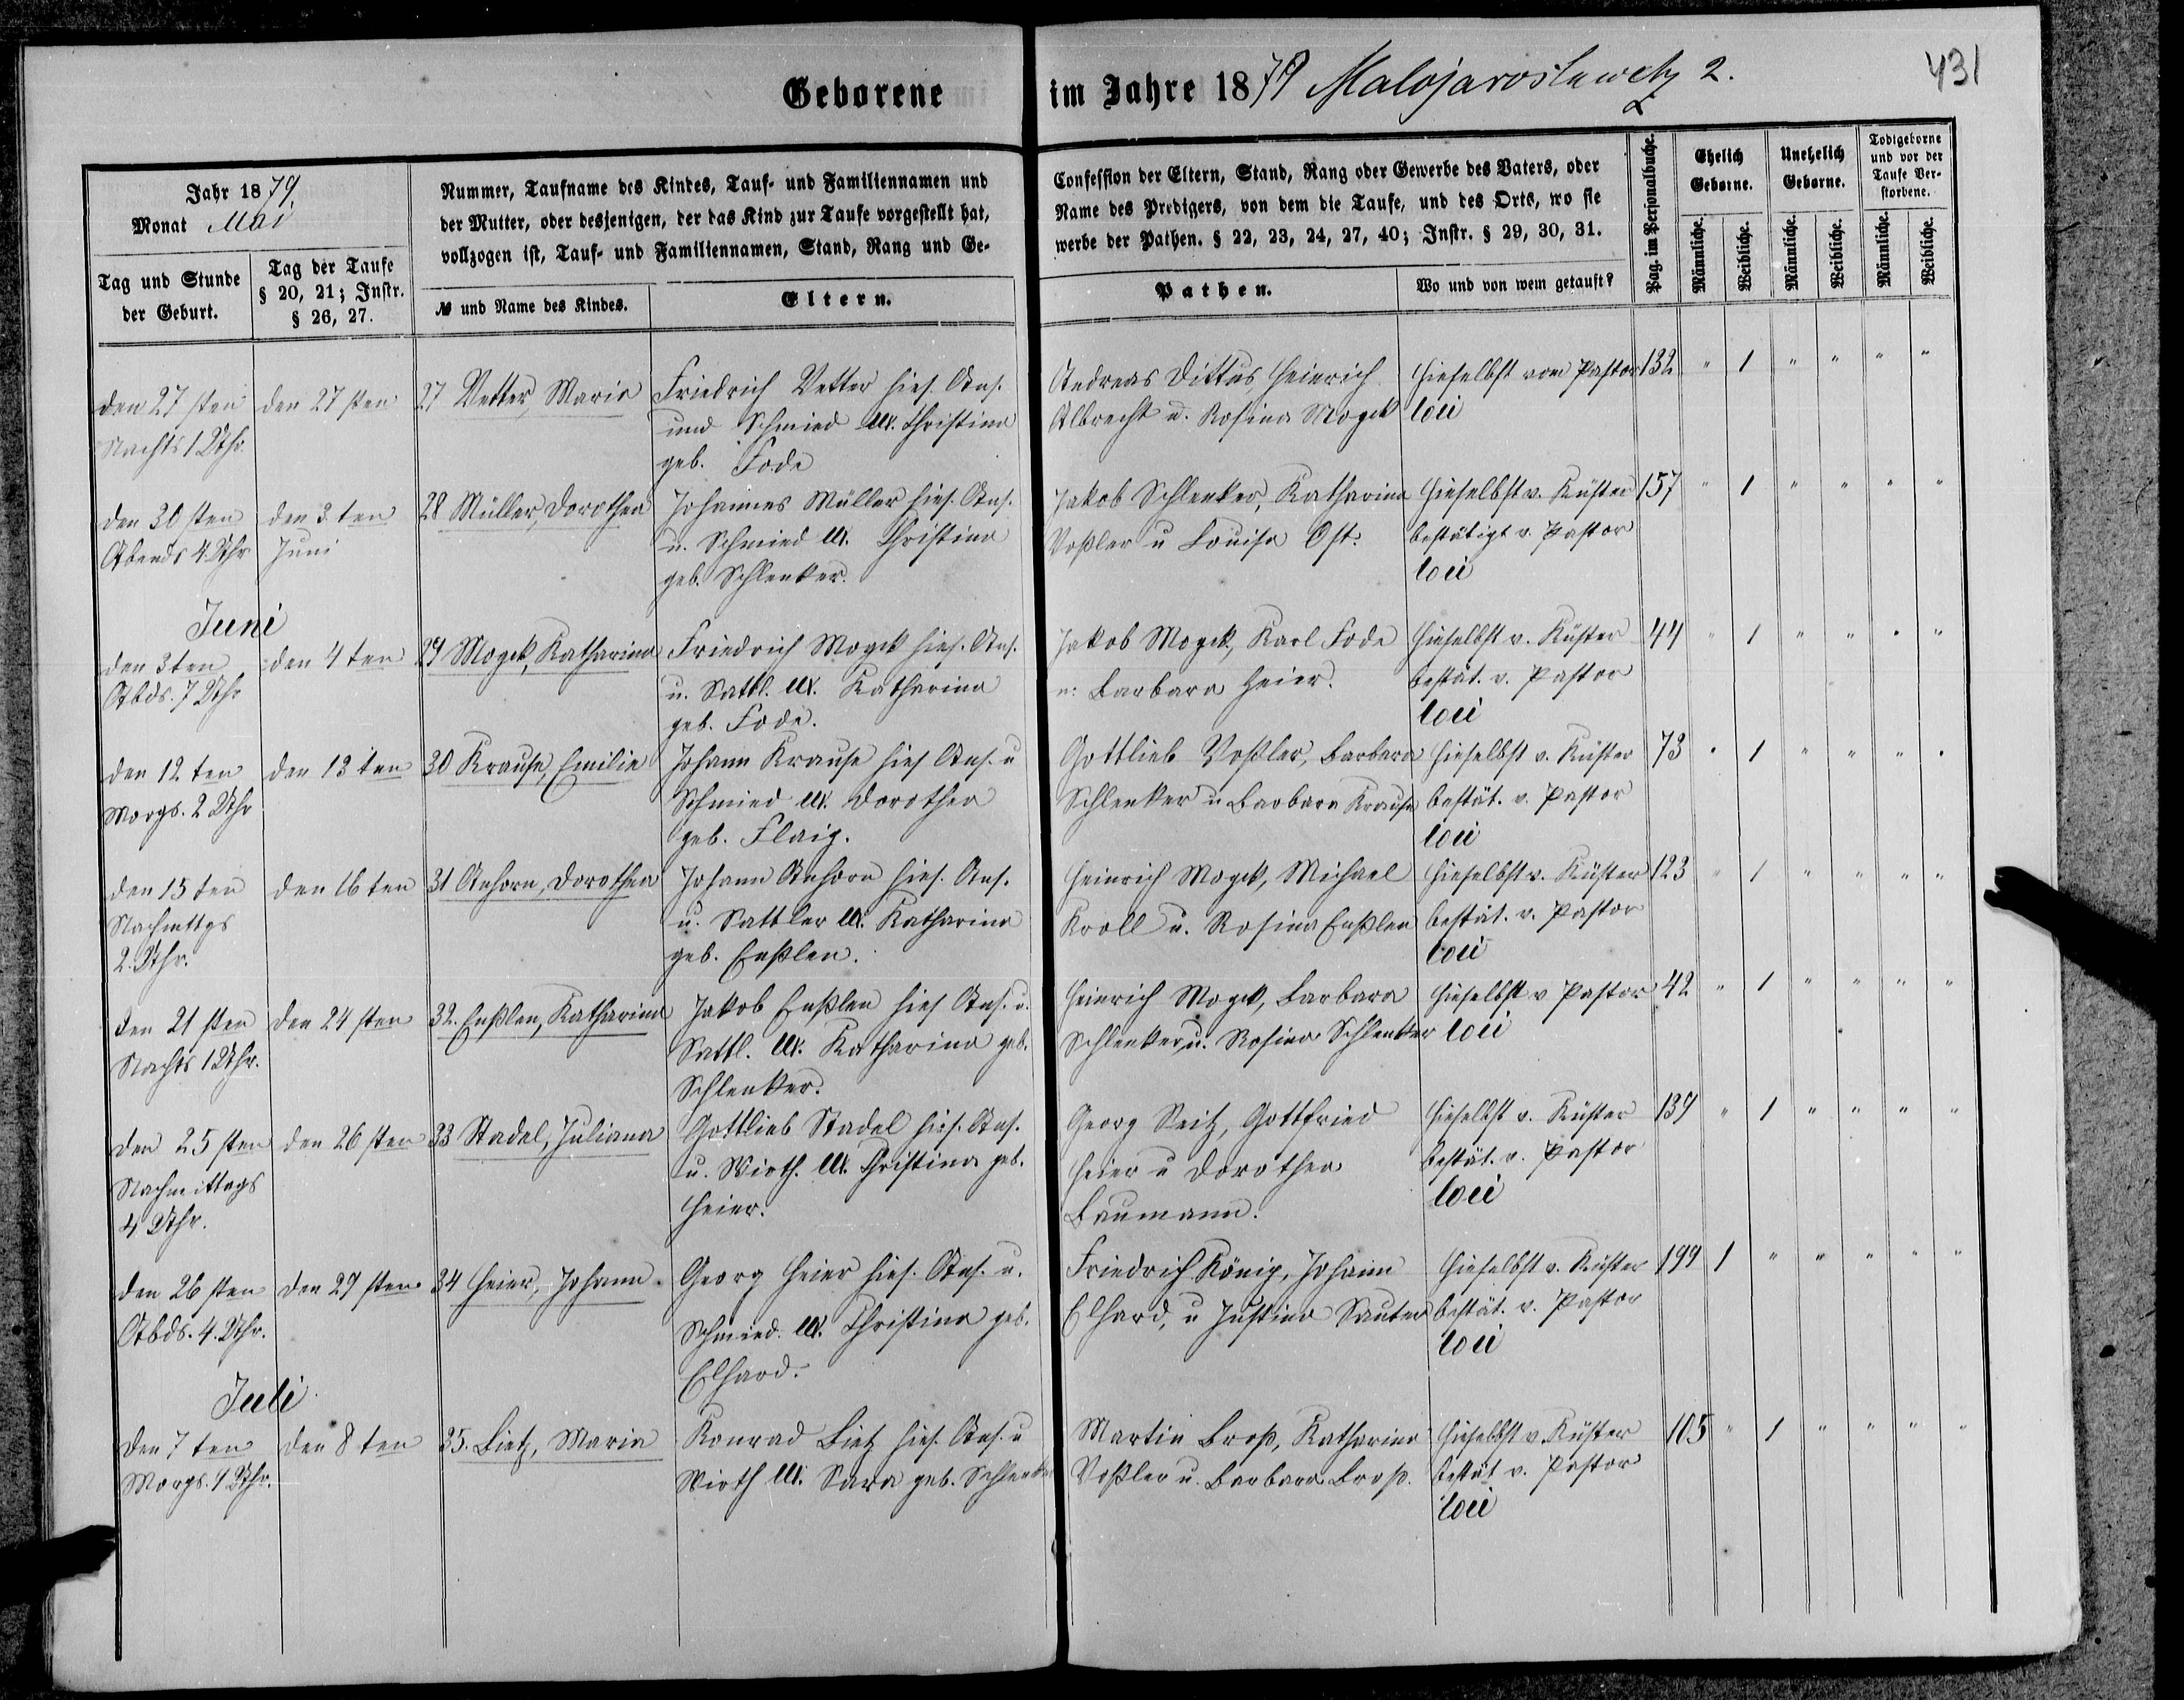 Geborene im Jahre 1879 Malojaroslawetz 2.
431
Jahr 1879.
Monat Mai
Tag und Stunde
der Geburt.
Tag der Taufe
§ 20, 21; Instr.
§ 26, 27.
Nummer, Taufname des Kindes, Tauf- und Familiennamen und
der Mutter, oder desjenigen, der das Kind zur Taufe vorgestellt hat,
vollzogen ist, Tauf- und Familiennamen, Stand, Rang und Ge-
№ und Name des Kindes.
Eltern.
Confession der Eltern, Stand, Rang oder Gewerbe des Vaters, oder
Name des Predigers, von dem die Taufe, und des Orts, wo sie
werbe der Pathen. § 22, 23, 24, 27, 40; Instr. § 29, 30, 31.
Pathen.
Wo und von wem getauft?
Pag. im Personalbuche.
Ehelich
Geborne.
Unehelich
Geborne.
Todtgeborne
und vor der
Taufe Ver-
storbene.
Männliche.
Weibliche.
Männliche.
Weibliche.
Männliche.
Weibliche.
den 27 sten
Nachts 1 Uhr.
den 27 sten
27 Vetter, Maria
Friedrich Vetter hies. Ans.
und Schmied M. Christina
geb. Fode
Andreas Dittus, Heinrich
Albrecht u. Rosina Mogck
hieselbst vom Pastor
loci
132 " 1 " " " "
den 30 sten
Abends 4 Uhr
den 3 ten
Juni
28 Müller, Dorothea
Johannes Müller hies. Ans.
u. Schmied M. Christina
geb. Schlenker.
Jakob Schlenker, Katharina
Voßler u Louisa Ost.
hieselbst v. Küster
bestätigt v. Pastor
loci
157 " 1 " " " "
Juni
den 3ten
Abds. 7 Uhr
den 4 ten
29 Mogck, Katharina
Friedrich Mogck hies. Ans.
u. Sattl. M. Katharina
geb. Fode.
Jakob Mogck, Karl Fode
u. Barbara Heier.
hieselbst v. Küster
bestät. v. Pastor
loci
44 " 1 " " " "
den 12 ten
Morgs. 2 Uhr
den 13 ten
30 Krause, Emilie
Johann Krause hies Ans. u
Schmied M. Dorothea
geb. Flaig.
Gottlieb Voßler, Barbara
Schlenker u Barbara Krause
hieselbst v. Küster
bestät. v. Pastor
loci
73 " 1 " " " "
den 15 ten
Nachmttgs
2. Uhr.
den 16 ten
31 Anhorn, Dorothea
Johann Anhorn hies. Ans.
u. Sattler M. Katharina
geb. Enßlen.
Heinrich Mogck, Michael
Kroll u. Rosina Enßlen
hieselbst v. Küster
bestät. v. Pastor
loci
123 " 1 " " " "
den 21 sten
Nachts 1 Uhr.
den 24 sten
32. Enßlen, Katharina
Jakob Enßlen hies Ans. u.
Sattl. M. Katharina geb.
Schlenker.
Heinrich Mogck, Barbara
Schlenker, u. Rosina Schlenker
hieselbst v Pastor
loci
42 " 1 " " " "
den 25 sten
Nachmittags
4 Uhr.
den 26 sten
33 Stadel, Juliana
Gottlieb Stadel hies. Ans.
u. Wirth. M. Christina geb.
Heier.
Georg Seitz, Gottfried
Heier u Dorothea
Baumann.
hieselbst v. Küster
bestät. v. Pastor
loci
139 " 1 " " " "
den 26 sten
Abds. 4. Uhr.
den 29 sten
34 Heier, Johann.
Georg Heier hies. Ans. u.
Schmied. M. Christina geb.
Elhard.
Friedrich König, Johann
Elhard, u Justina Sauter
hieselbst v. Küster
bestät. v. Pastor
loci
199 1 " " " " "
Juli
den 7 ten
Morgs. 9 Uhr.
den 8 ten
35. Lietz, Maria
Konrad Lietz hies. Ans. u
Wirth M. Sara geb. Schlenker
Martin Broß, Katharina
Voßler u. Barbara Broß.
hieselbst v. Küster
bestät v. Pastor
loci
105 " 1 " " " "